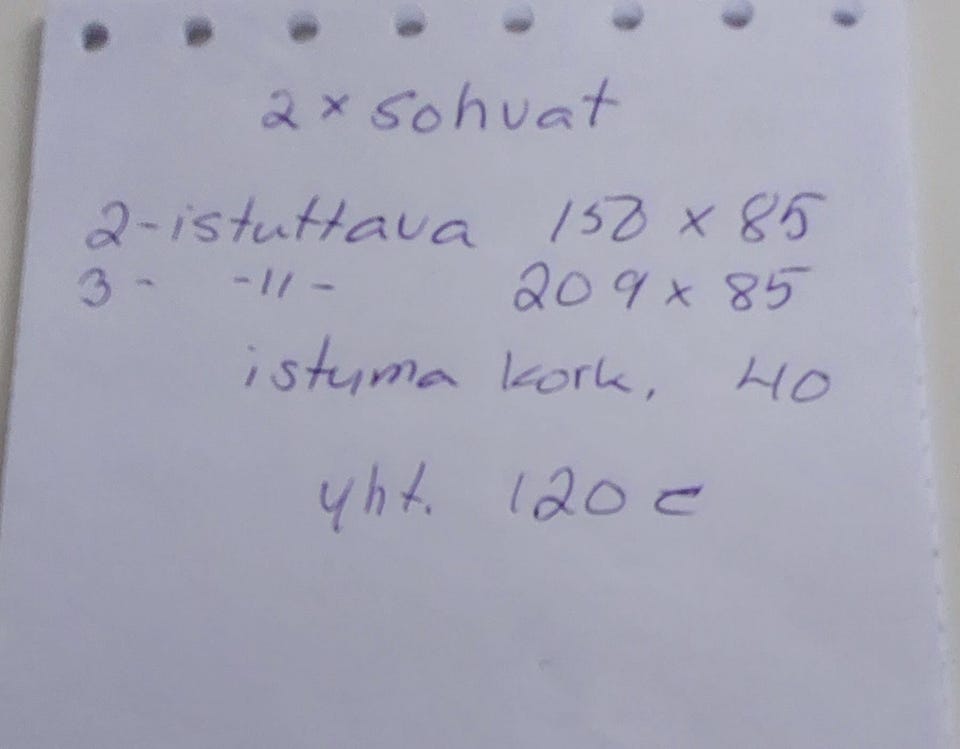 2 x sohvat
2-istuttava 158 x 85
3 - -11- 209 x 85
istuma kork. 40
yht. 120 €